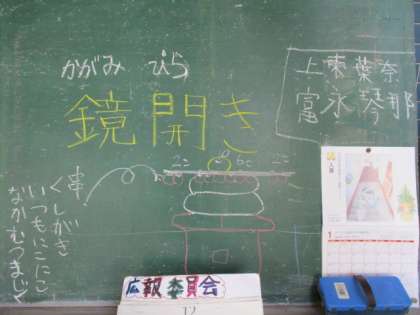 かがみ びら
鏡開き
上東葉奈
富永琴那
2こ 6こ 2こ
串
くしがき
いつもにこにこ
なかむつまじく
広報委員会
12
1